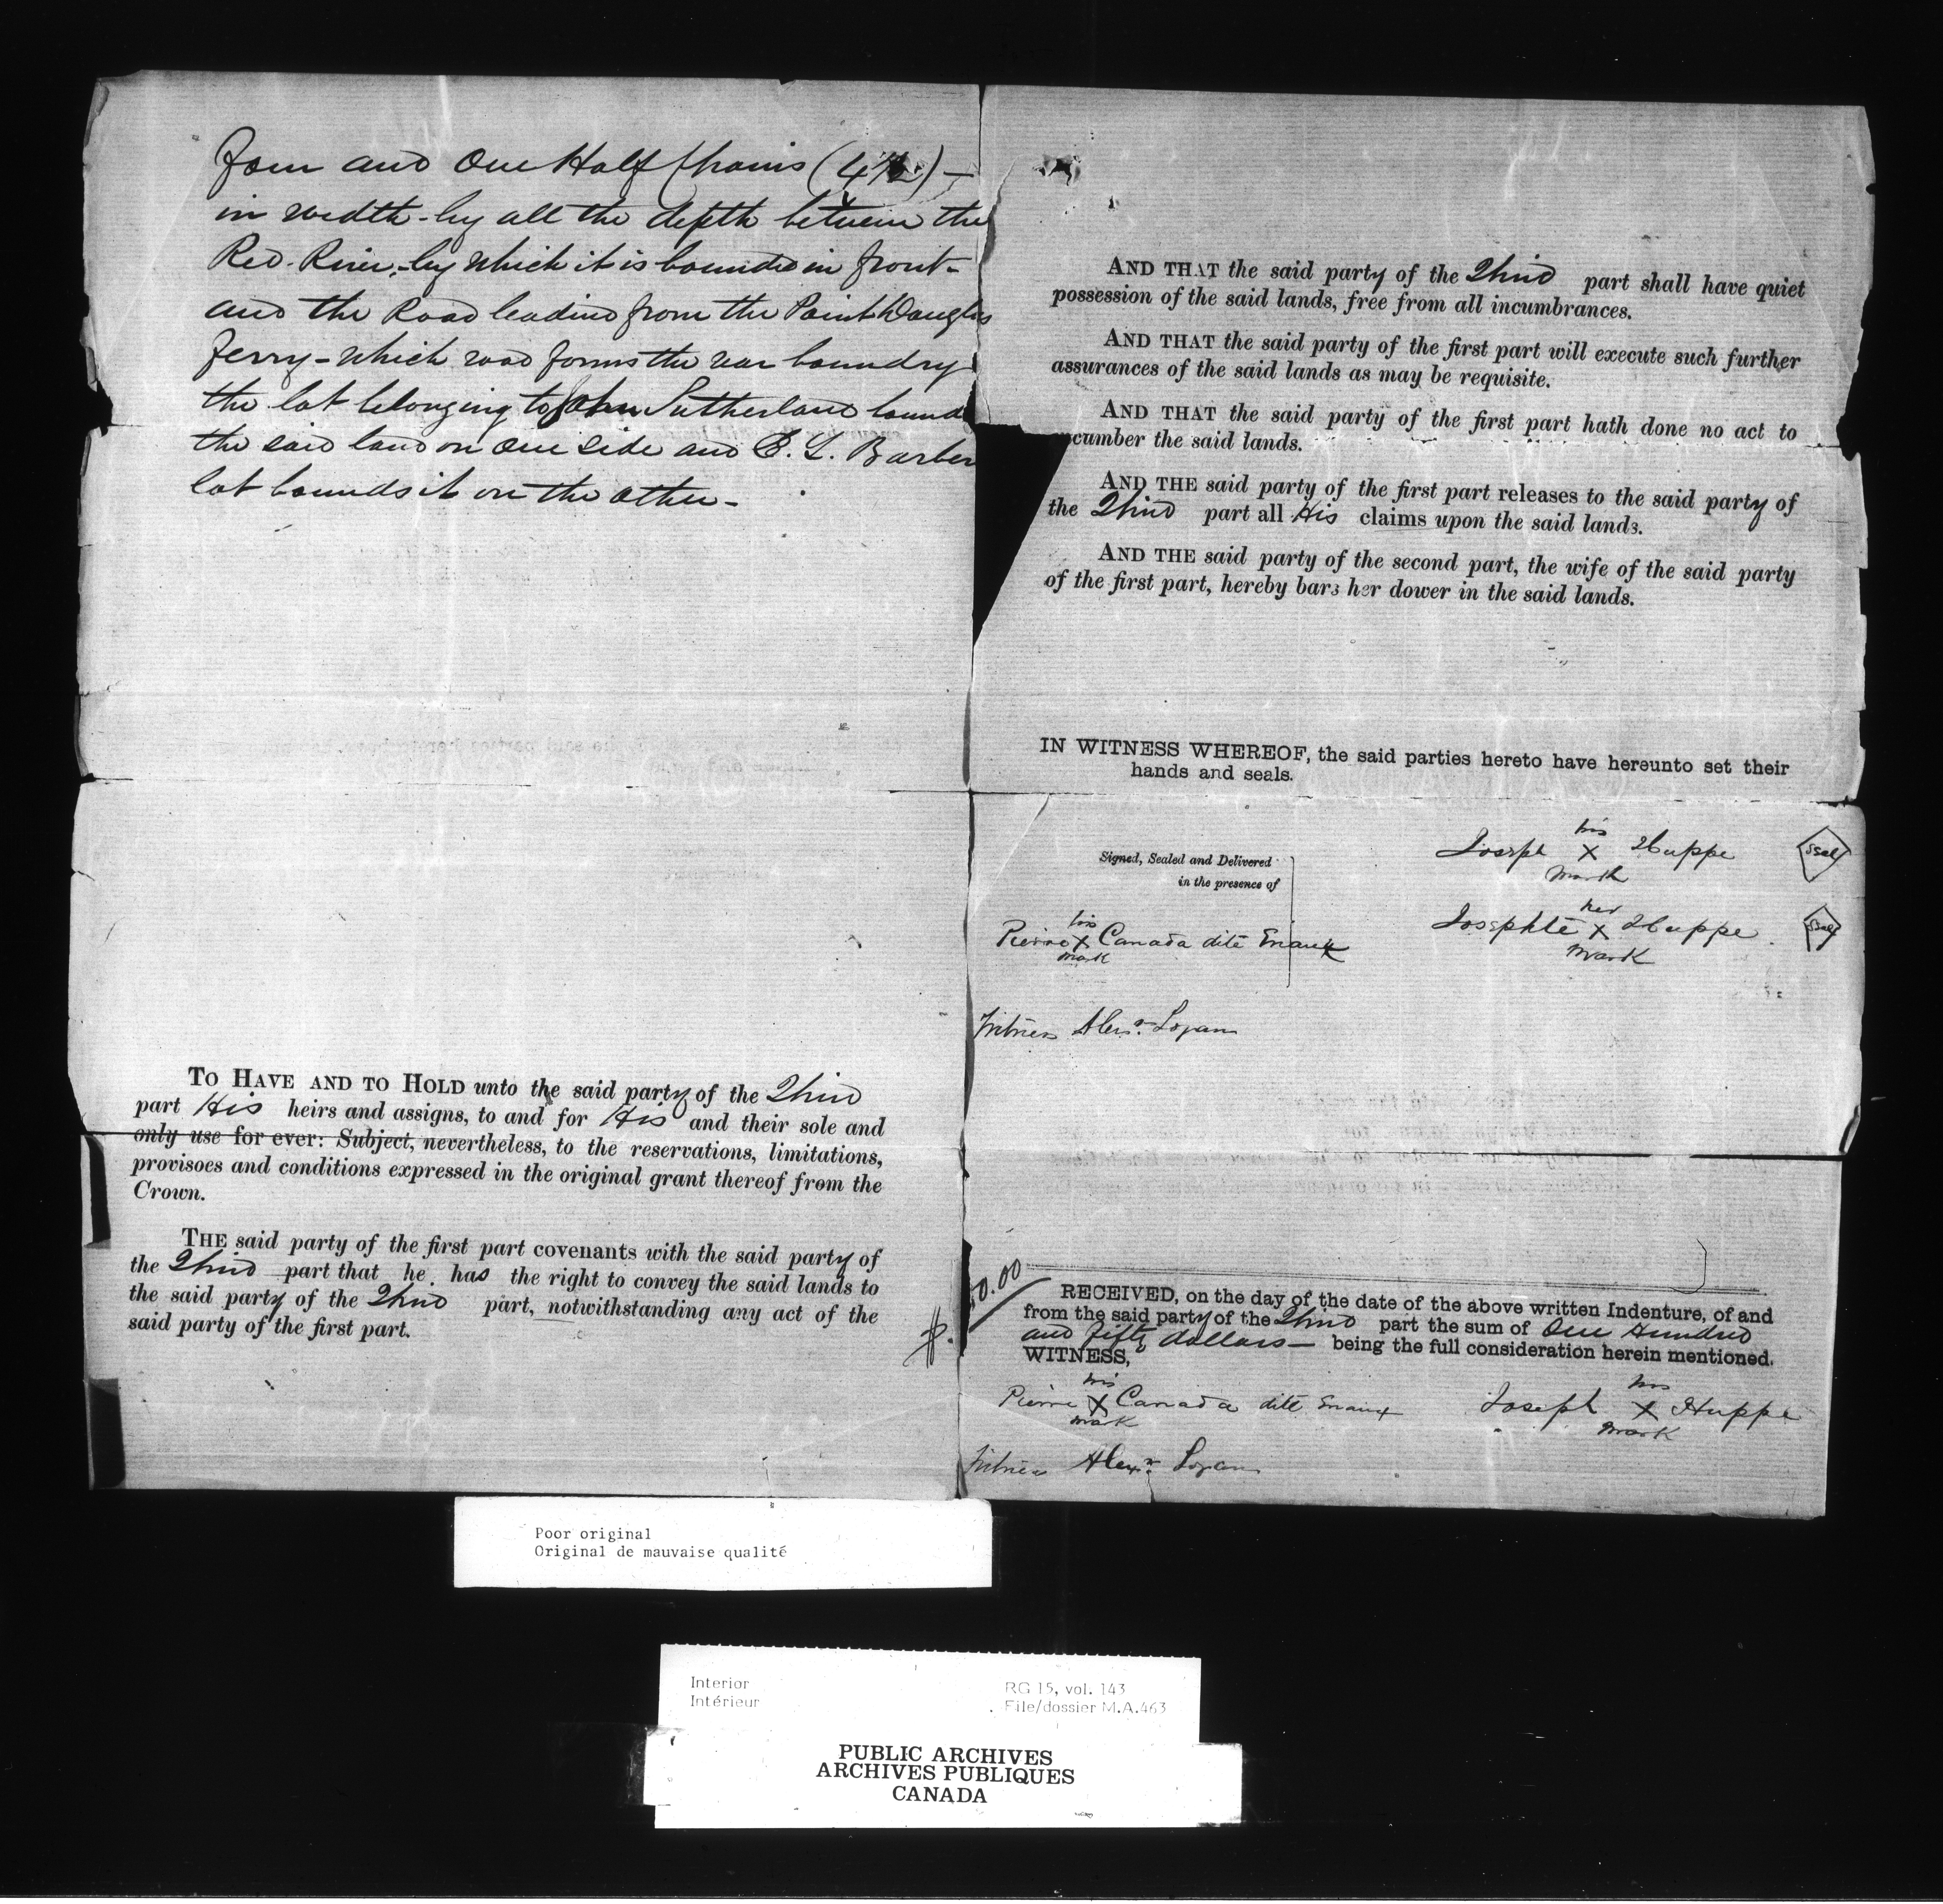 Four and One Half Chains (4½) —
in width - by all the depth between the
Red River, - by which it is bounded in front -
and the Road leading from the Point Douglas
Ferry - which road forms the rear boundry
the lot belonging to John Sutherland bounds
the said land on one side and E. L. Barber
lot bounds it on the other -
TO HAVE AND TO HOLD unto the said party of the Third
part His heirs and assigns, to and for His and their sole and
only use for ever: Subject, nevertheless, to the reservations, limitations,
provisoes and conditions expressed in the original grant thereof from the
Crown.
THE said party of the first part covenants with the said party of
the Third part that he has the right to convey the said lands to
the said party of the Third part, notwithstanding any act of the
said party of the first part.
AND THAT the said party of the Third part shall have quiet
possession of the said lands, free from all incumbrances.
AND THAT the said party of the first part will execute such further
assurances of the said lands as may be requisite.
AND THAT the said party of the first part hath done no act to
cumber the said lands.
AND THE said party of the first part releases to the said party of
the Third part all His claims upon the said lands.
AND THE said party of the second part, the wife of the said party
of the first part, hereby bars her dower in the said lands.
IN WITNESS WHEREOF, the said parties hereto have hereunto set their
hands and seals.
Signed, Sealed and Delivered
in the presence of
his
Joseph X Huppe Seal
mark
her
Josephte X Huppe Seal
mark
his
Pierre X Canada dite Enaux
mark
Witness Alexr. Logan
$. 50.00
RECEIVED, on the day of the date of the above written Indenture, of and
from the said party of the Third part the sum of One Hundred
and fifty dollars — being the full consideration herein mentioned.
WITNESS,
his
Pierre X Canada dite Enaux
mark
his
Joseph X Huppe
mark
Witness Alexr. Logan
Poor original
Original de mauvaise qualité
Interior
Intérieur
RG 15, vol. 143
File/dossier M.A.463
PUBLIC ARCHIVES
ARCHIVES PUBLIQUES
CANADA